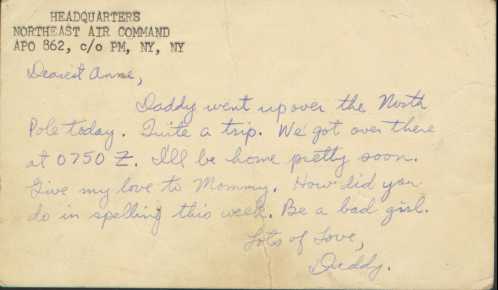 HEADQUARTERS
NORTHEAST AIR COMMAND
APO 862, c/o PM, NY, NY
Dearest Anne,
Daddy went up over the North
Pole today. Quite a trip. We got over there
at 0750 Z. I'll be home pretty soon.
Give my love to Mommy. How did you
do in spelling this week. Be a bad girl.
Lots of Love,
Daddy.